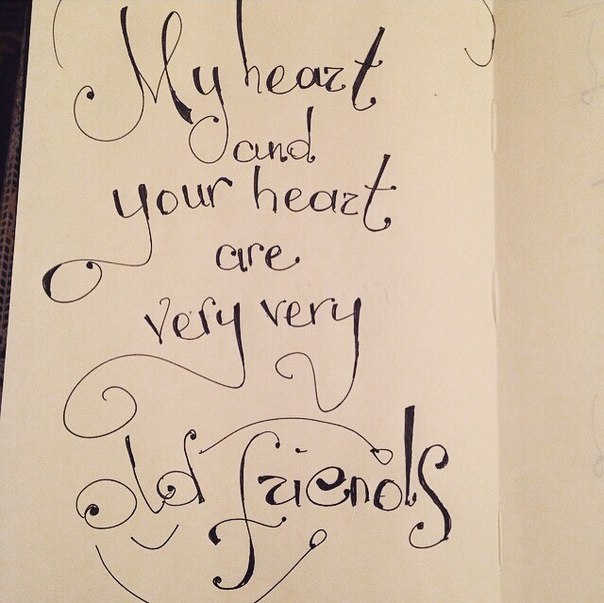 My heart
and
your heart
are
very very
old friends